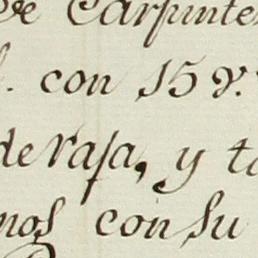 de Carpinte
con 159.
de raſa, y ta
nos con ſu